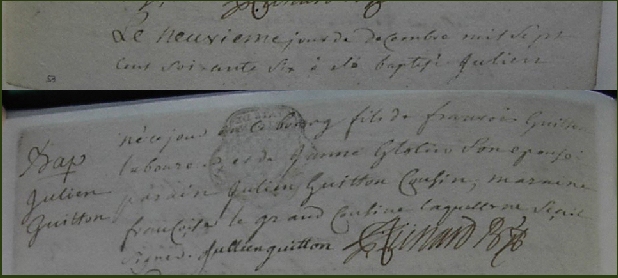 Le neuxieme jour de decembre mil sept
cent soixante six à été baptisé Julien
Bap
Julien
Guitton
né ce jour au bourg fils de francois Guitton
laboureur et de Janne son epouse
parain Julien Guitton Cousin, maraine
francoise le grand Cousine laquelle ne
signe. Jullien guitton